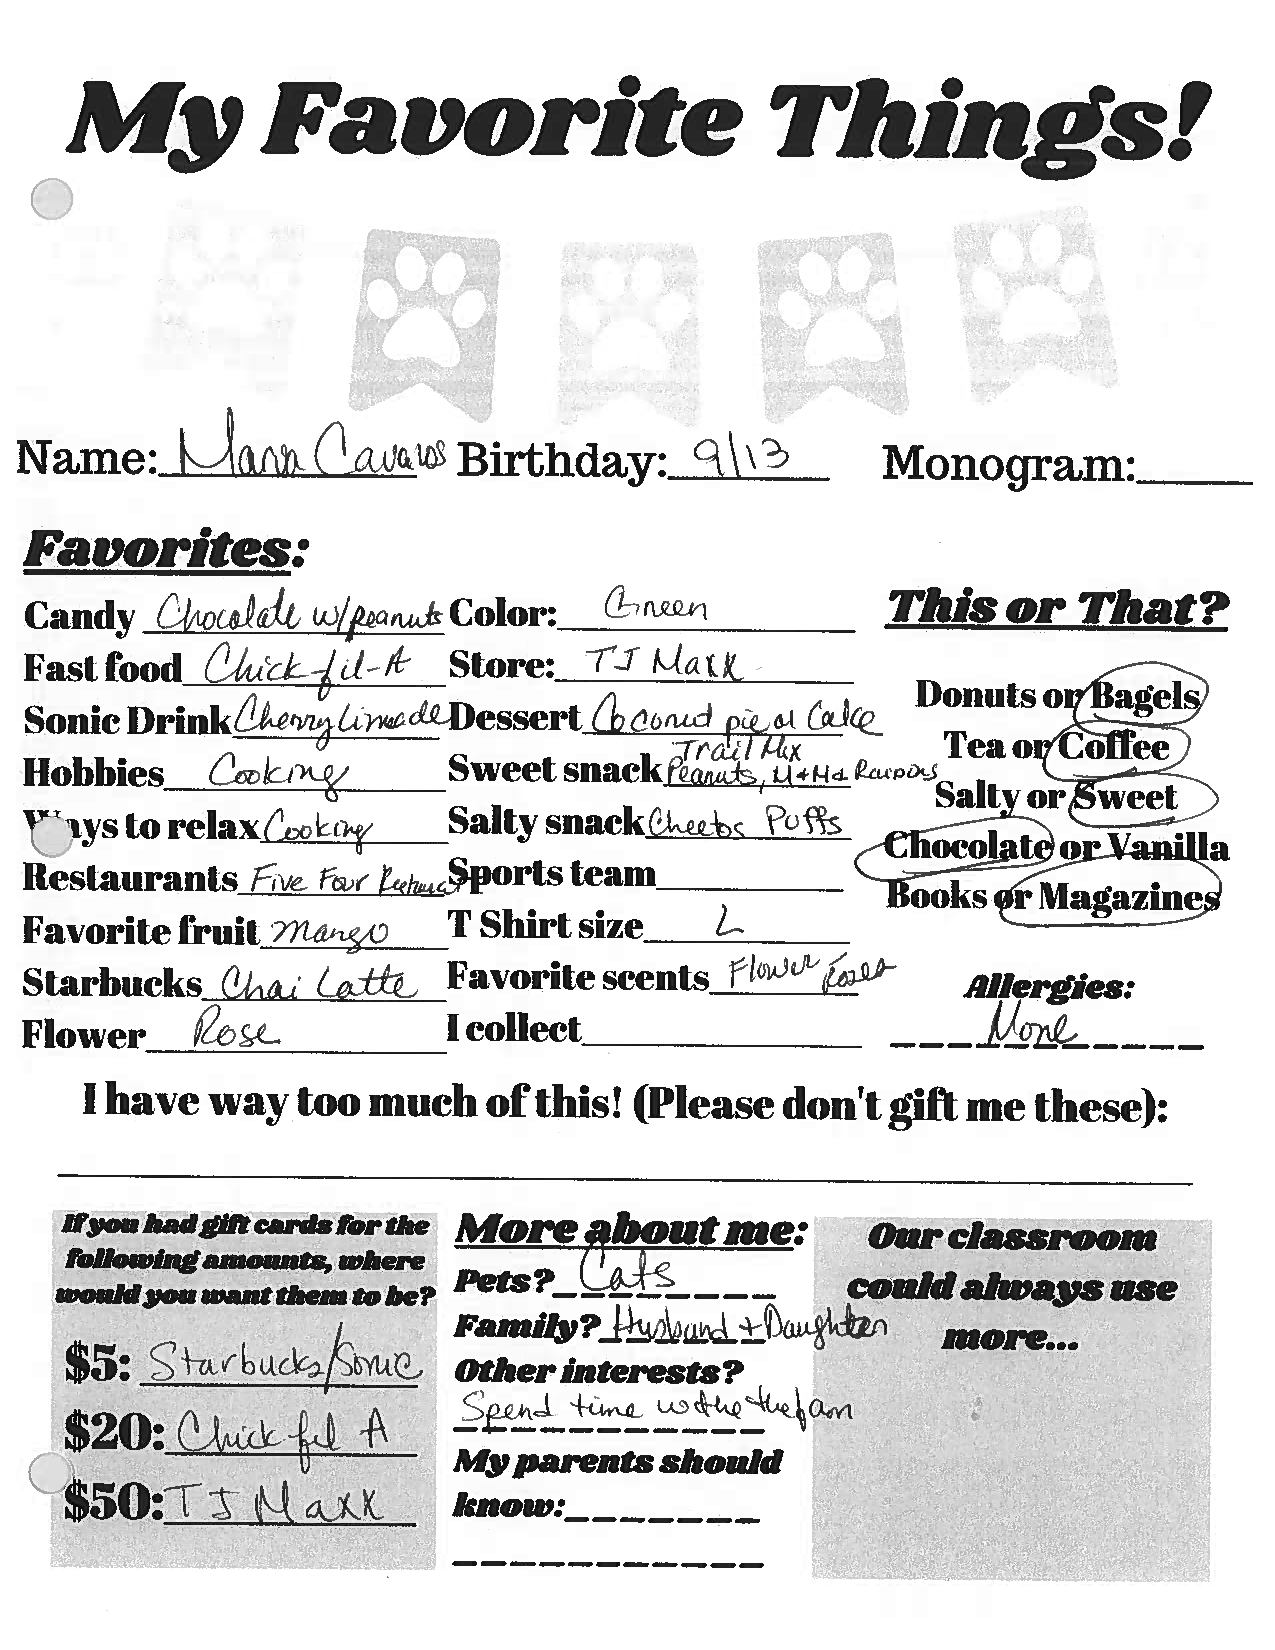 My Favorite Things!
Name: Maria Cavazos Birthday: 9/13 Monogram:
Favorites:
Candy Chocolate w/peanuts Color: Green
Fast food Chick-fil-A Store: TJ Maxx
Sonic Drink Cherry Limeade Dessert Coconut pie or Cake
Hobbies Cooking Sweet snack Trail Mix
Peanuts, M+Ms Raisins
Ways to relax Cooking Salty snack Cheetos Puffs
Restaurants Five Four Sports team
Favorite fruit mango T Shirt size L
Starbucks Chai Latte Favorite scents Flower Roses
Flower Rose I collect
This or That?
Donuts or Bagels
Tea or Coffee
Salty or Sweet
Chocolate or Vanilla
Books or Magazines
Allergies:
None
I have way too much of this! (Please don't gift me these):
If you had gift cards for the
following amounts, where
would you want them to be?
$5: Starbucks/Sonic
$20: Chick fil A
$50: TJ Maxx
More about me:
Pets? Cats
Family? Husband + Daughter
Other interests?
Spend time the fam
My parents should
know:
Our classroom
could always use
more...